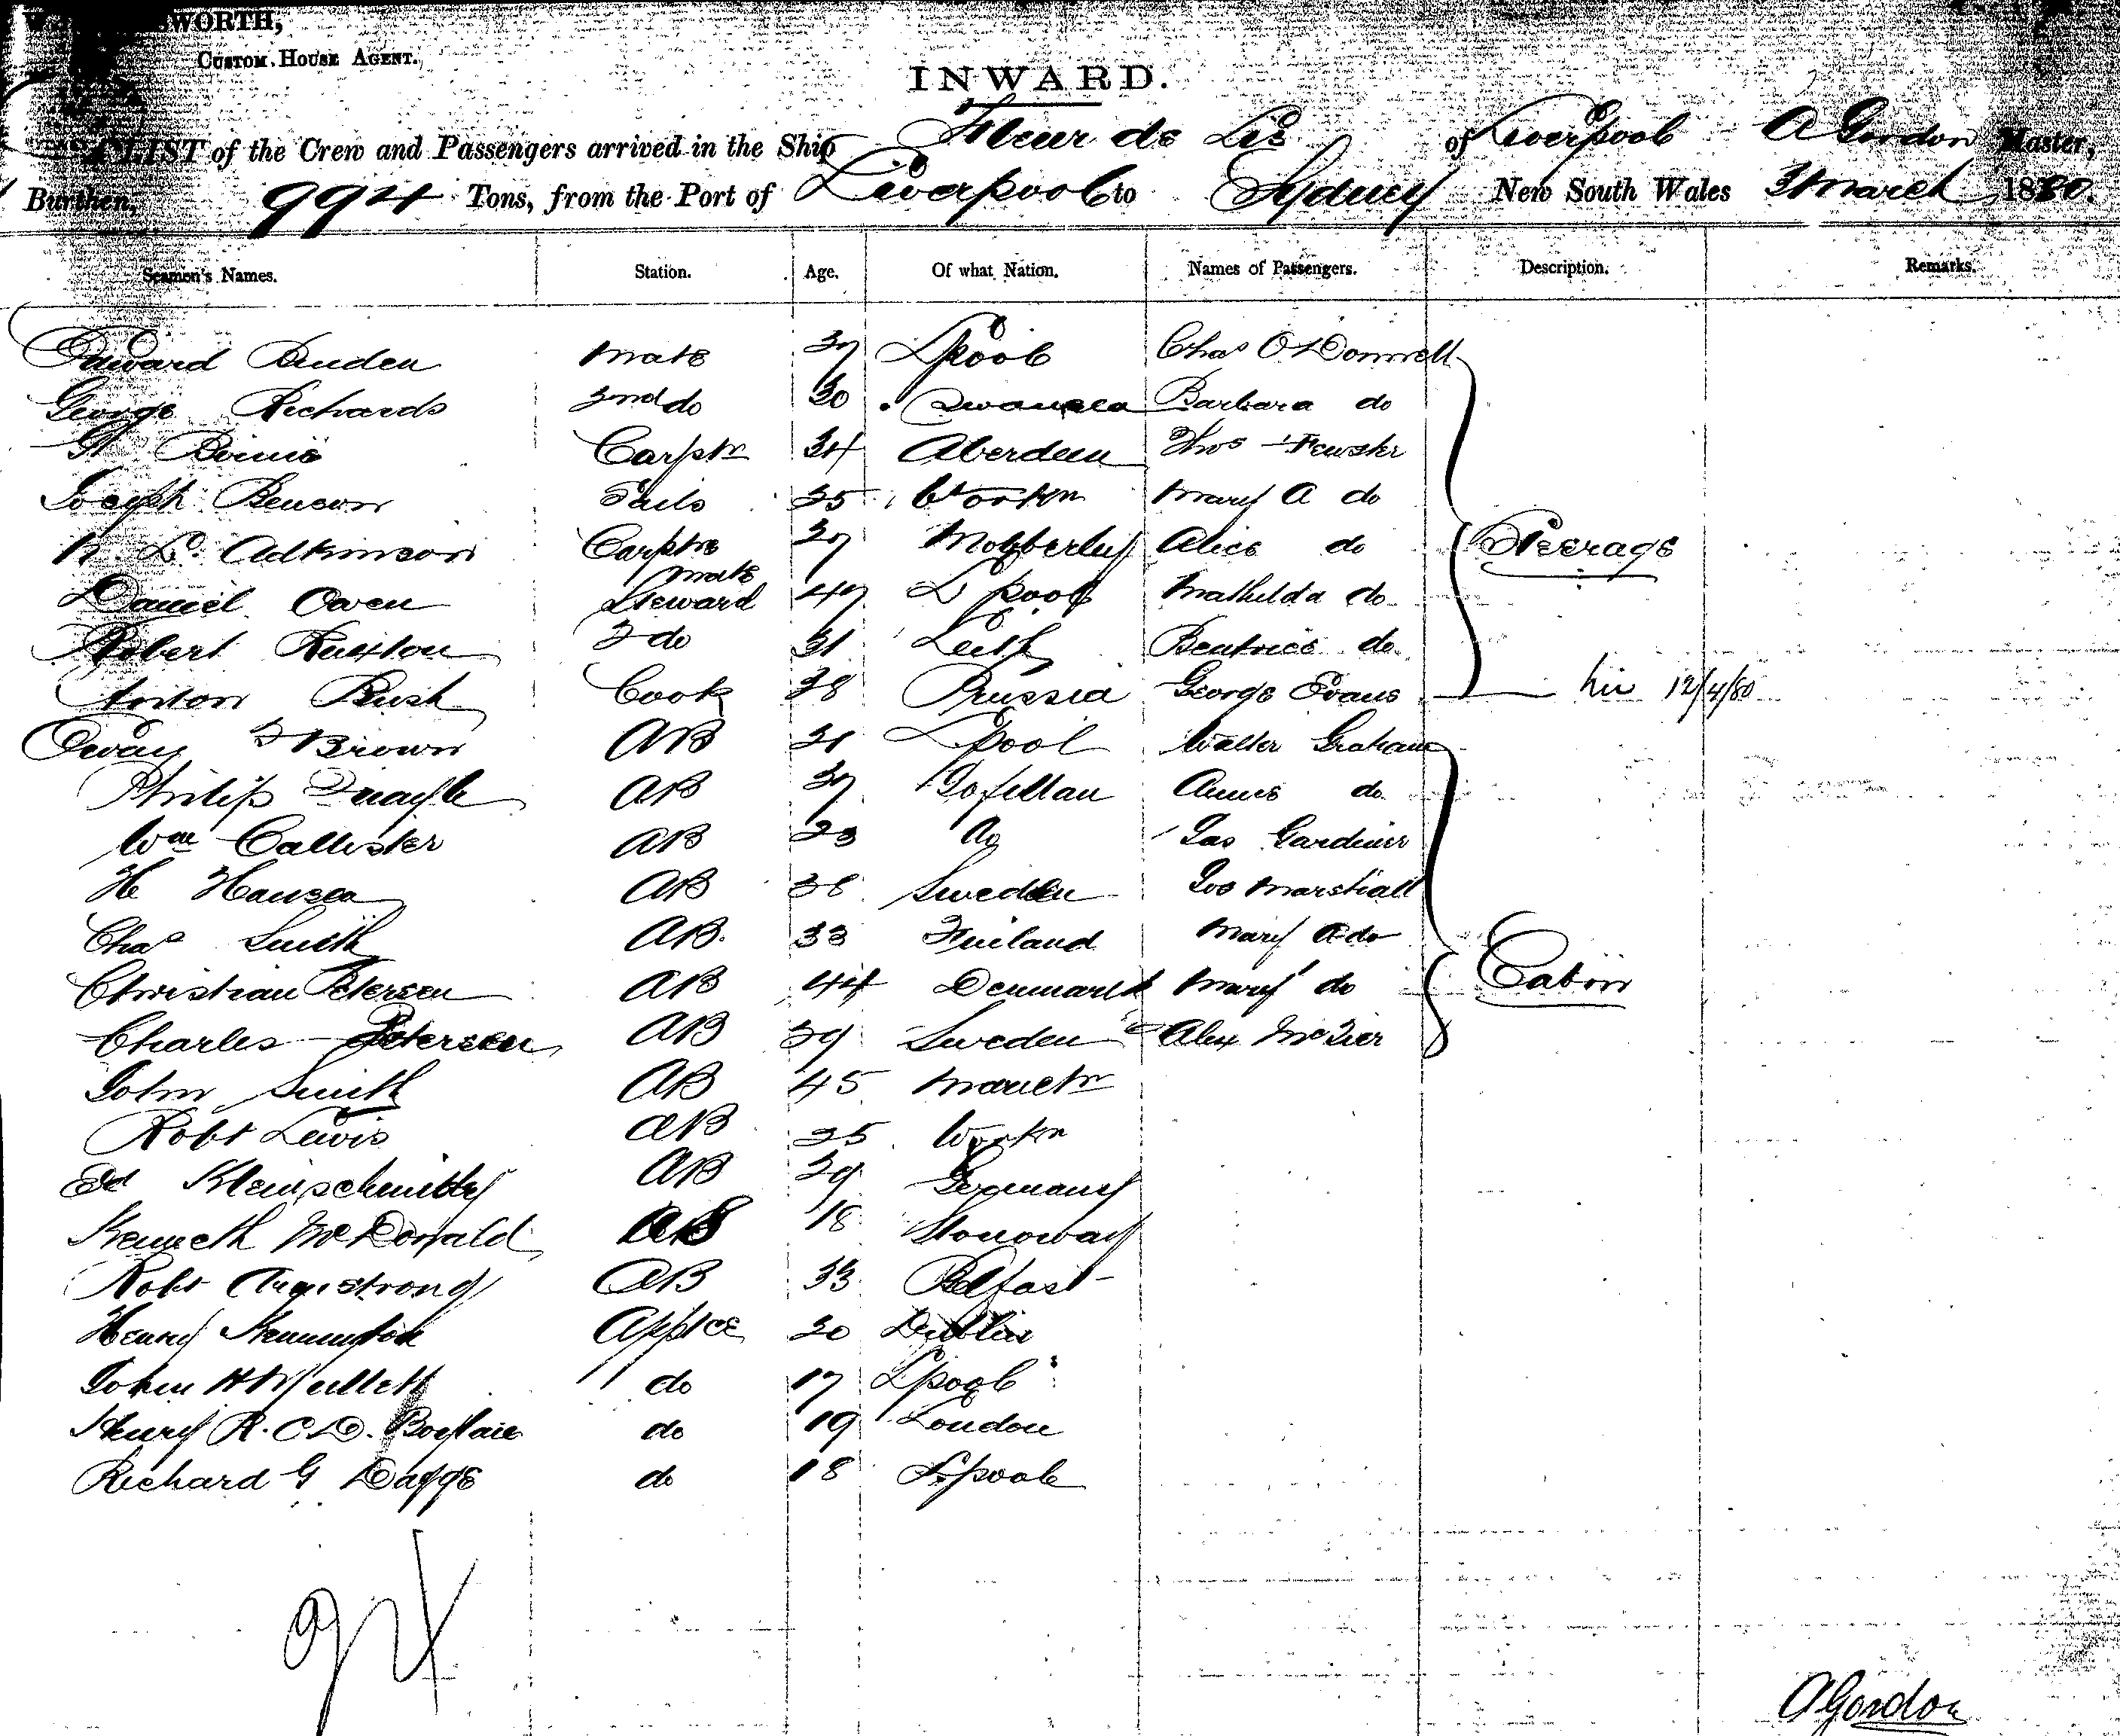 WORTH,
CUSTOM HOUSE AGENT.
INWARD.
LIST of the Crew and Passengers arrived in the Ship Fleur de Lis of Liverpool A Gordon Master,
Burthen, 994 Tons, from the Port of Liverpool to Sydney New South Wales 3 March 1880.
Seamen's Names. Station. Age. Of what Nation. Names of Passengers. Description. Remarks.
Edward Mate 37 Lpool Chas O'Donnell
George Richards 2nd do 30 Swansea Barbara do
Carptr 34 Aberdeen Thos Fewster
Joseph Benson Sails 25 Workn Mary A do
Adkinson Carptrs mate 27 Mobberley Alice do Steerage
Daniel Owen Steward 47 Lpool Mathilda do
Robert 2 do 31 Leith Beatrice do
Anton Bush Cook 38 Prussia George Evans 12/4/80
Brown AB 21 Lpool Walter Graham
Philip Quayle AB 37 Annie do
Wm Callister AB 23 do Jas Gardiner
H Hansen AB 38 Sweden Jos Marshall
Chas Smith AB. 33 Finland Mary A do
Christian Petersen AB 44 Denmark Mary do Cabin
Charles Petersen AB 39 Sweden Alex
John Smith AB 45
Robt Lewis AB 25 Workn
Ed AB 29 Germany
Kenneth McDonald 18 Stonoway
Robt Armstrong AB 33 Belfast
Henry App'ce 20 Dublin
do 17 Lpool
Henry R. C. D. do 19 London
Richard G Dagge do 18 Lpool
94
A Gordon